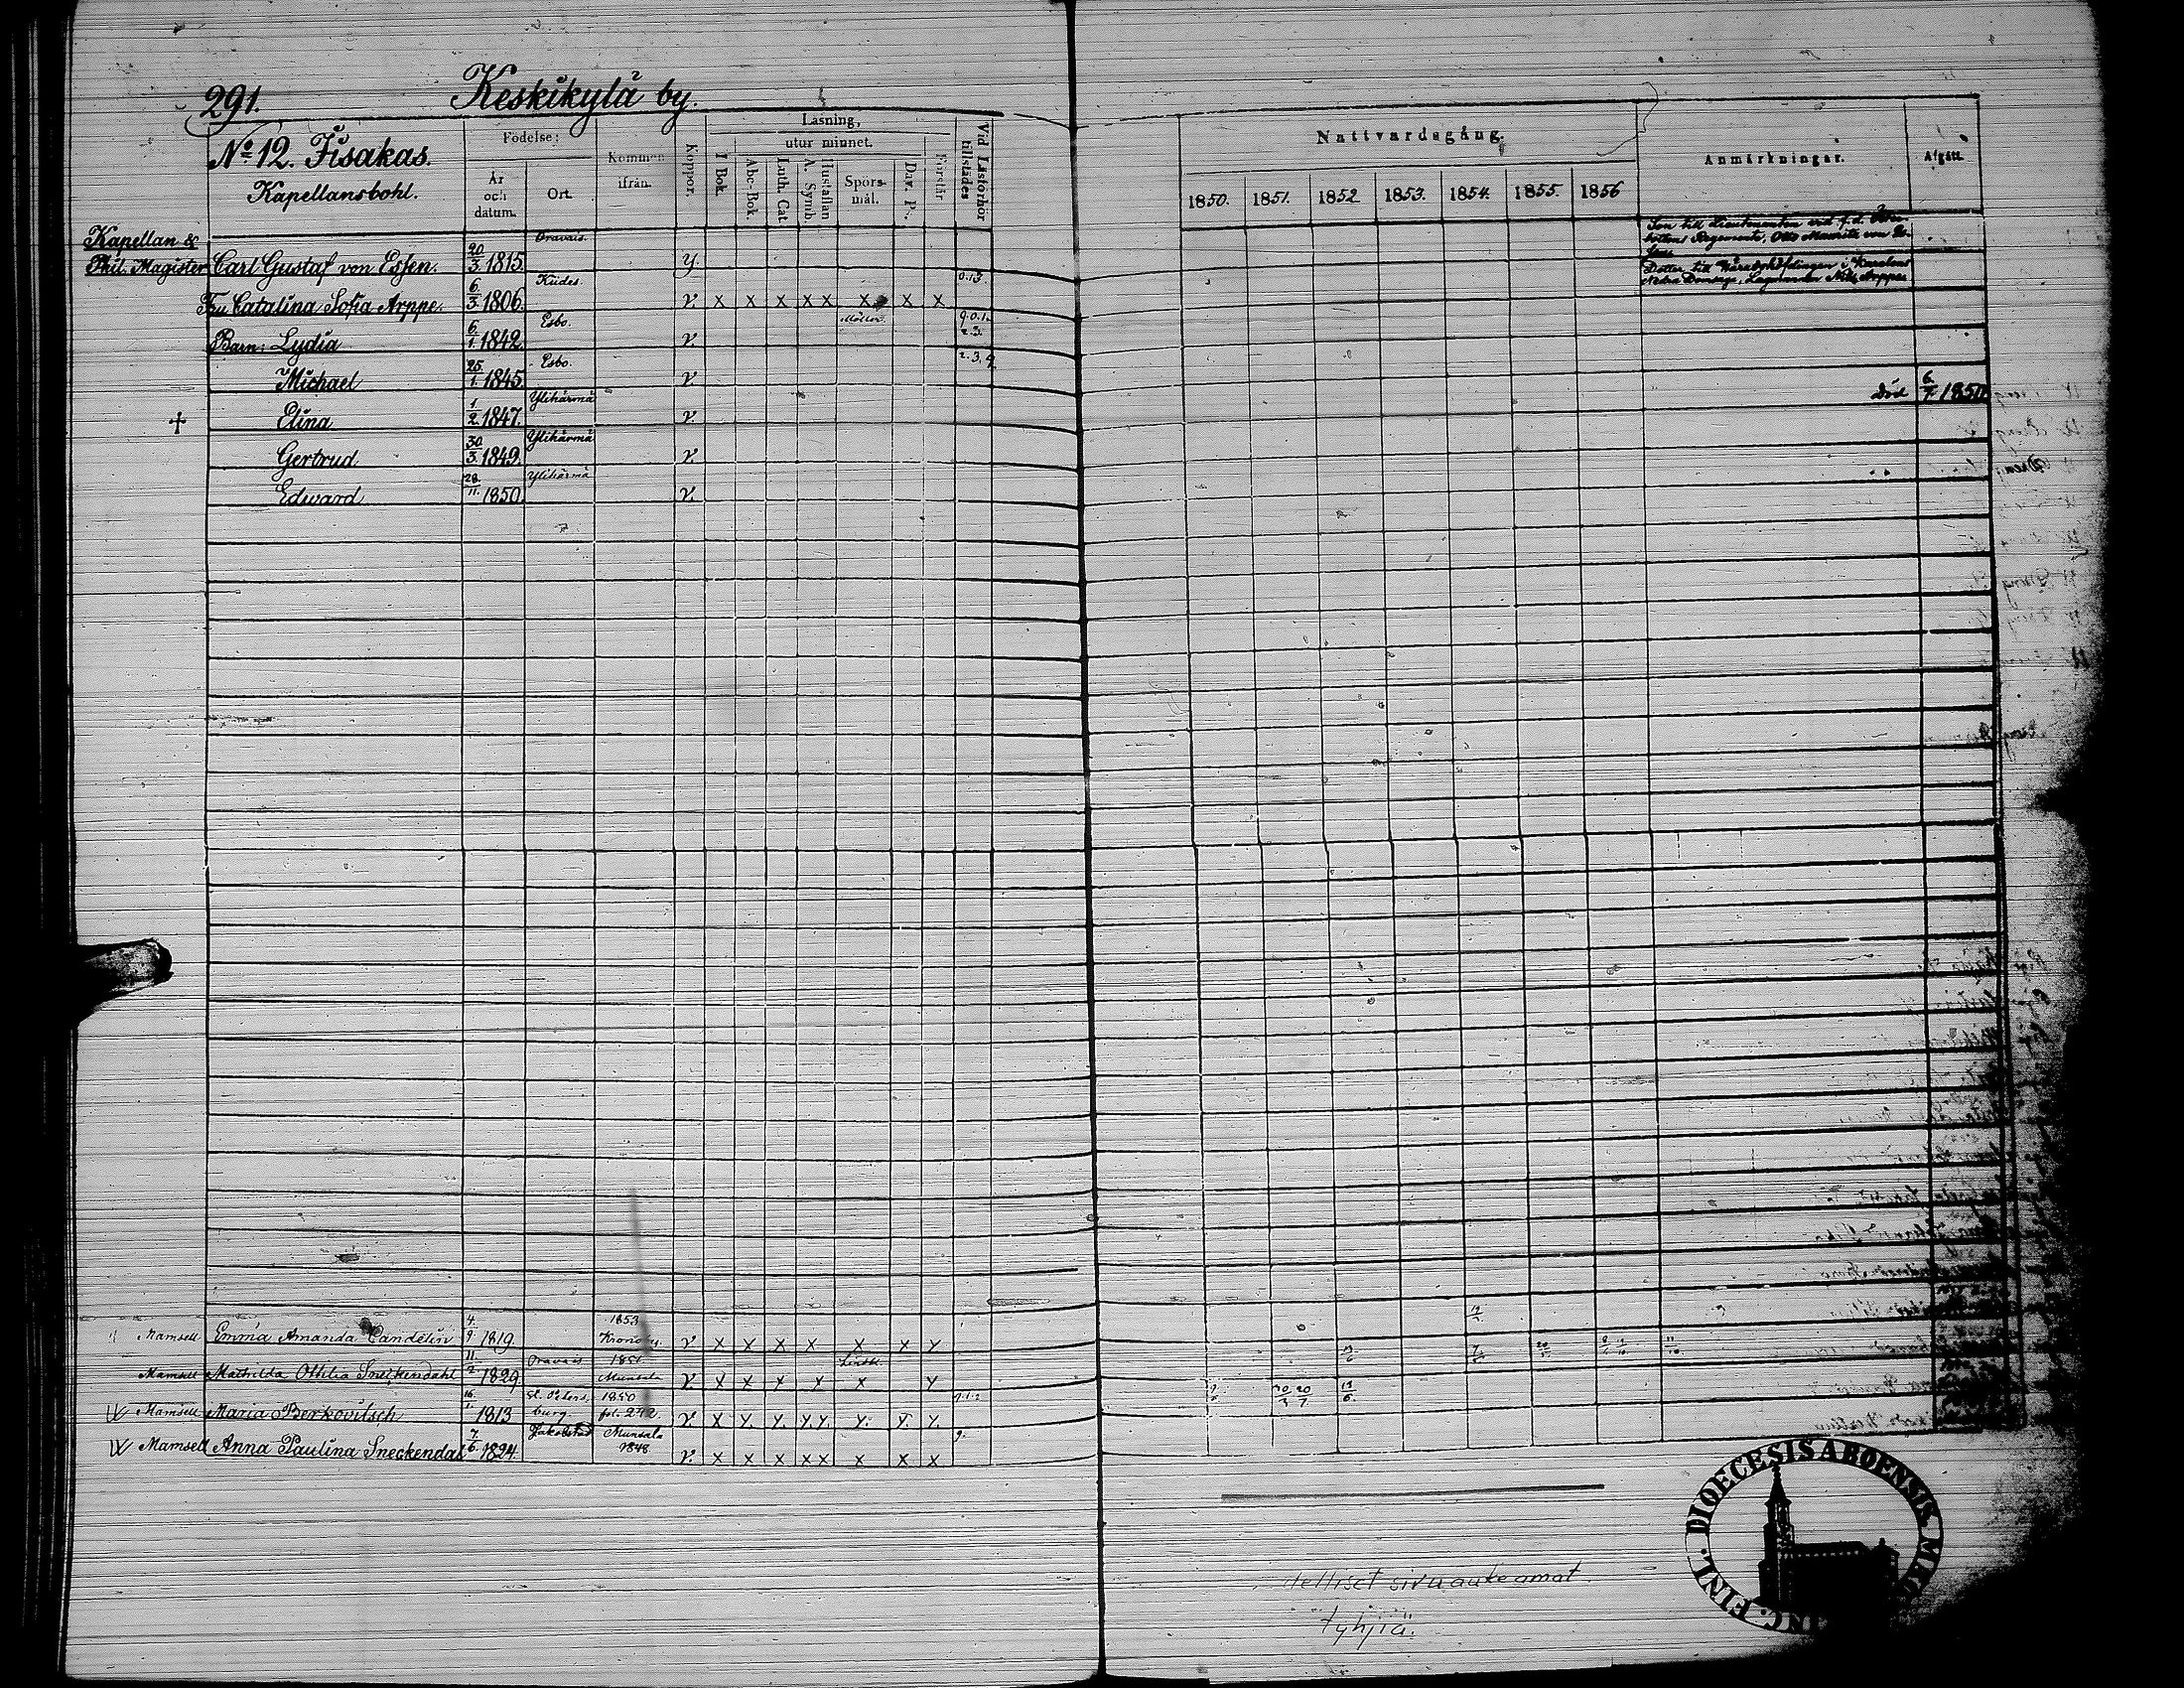 291. Keskikylä by.
No 12. Iisakas.
Kapellansbohl.
Födelse:
År och datum.
Ort.
Kommen ifrån.
Koppor.
Läsning,
utur minnet.
I Bok.
Abc-Bok.
Luth. Cat.
Hustaflan A. Symb.
Spörsmål.
Dav. Ps.
Vid Läsförhör tillstädes
Nattvardsgång.
1850. 1851. 1852 1853. 1854. 1855. 1856
Anmärkningar.
Afgått.
Kapellan &
Phil. Magister Carl Gustaf von Essen. 20/3 1815. Oravais. y. Son till Lieutenanten vid f.d. Österbottens Regemente, Otto Mauritz von Essen
Fru Catalina Sofia Arppe. 6/3 1806. Kides. v. x x x x x x x x 0.1.3. Dotter till Häradshöfdingen i Karelens Nedra Domsaga, Lagmannen Nils Arppe
Barn: Lydia 6/1 1842 Esbo. v. 9.0.1. 2.3.
Michael 25/1. 1845. Esbo. v 2.3.4
+ Elina 1/2. 1847. Ylihärmä v. död 6/7 1850
Gertrud 30/3. 1849. Ylihärmä v.
Edward 28/11. 1850. Ylihärmä v.
Mamsell Emma Amanda Candelin 4/9 1819. 1853 v x x x x x x x
Mamsell Mathilda Othilia Sneckendahl 11/2 1829. Oravais 1851 Munsala v. x x x x x x
W Mamsell Maria Berkovitsch 16/1 1813 St. Petersburg 1850 fol. 242 v. x x. x. x x. x. x. x. 9.1.2
W Mamsell Anna Paulina Sneckendal 7/6 1824. Jakobstad Munsala 1848 v. x x x x x x x x 9.
sivuaukeamat
tyhjiä.
DIOECESIS ABOENSIS
FINL.